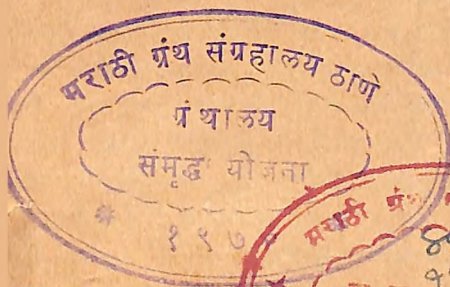 मराठी ग्रंथ संग्रहालय ठाणे
ग्रंथालय
संमृद्ध योजना
* १९७
मराठी ग्रंथ